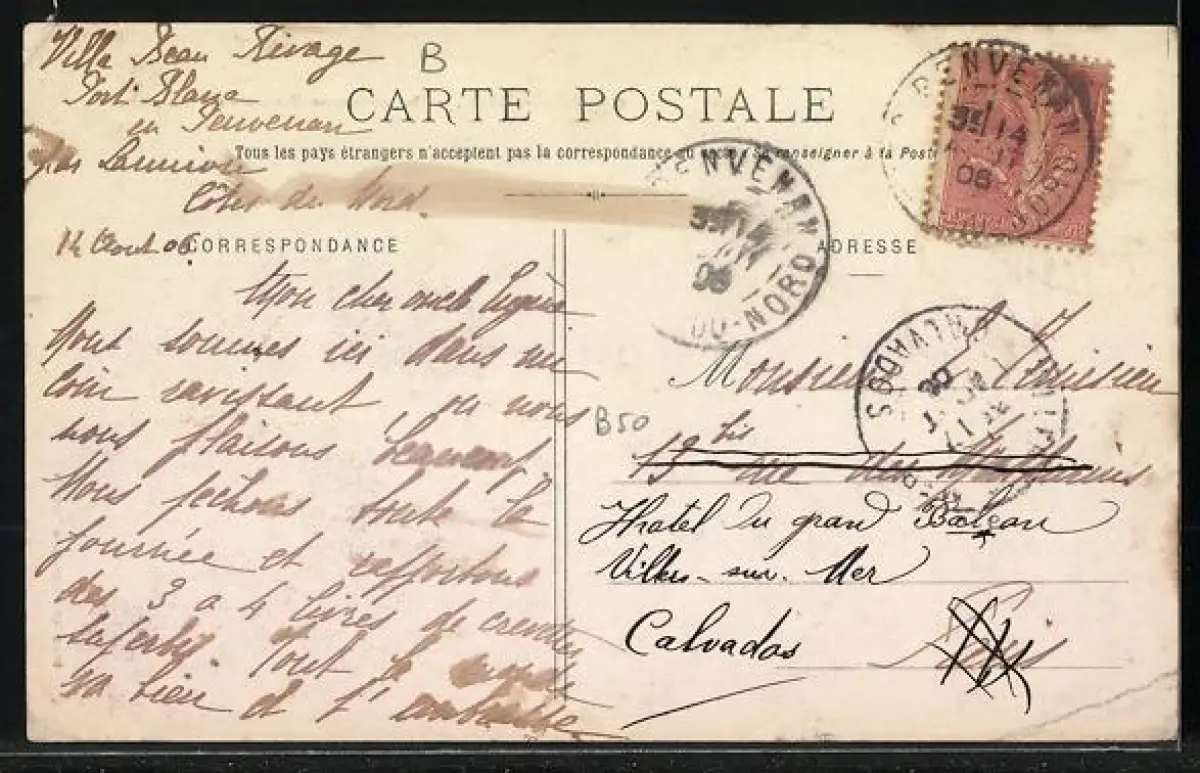 Villa Beau Rivage
Port Blanc
en Penvenan
par Lannion
Côtes du Nord
B
CARTE POSTALE
Tous les pays étrangers n'acceptent pas la correspondance au Se renseigner à la Poste
12 Aout 06
CORRESPONDANCE
Mon cher oncle Eugène
Nous sommes ici dans un
coin ravissant où nous
nous plaisons beaucoup
Nous pechons toute la
journée et rapportons
des 3 a 4 livres de crevettes
superbes. Tout le monde
va bien et t'embrasse
PENVENAN
14
06
DU-NORD
PENVENAN
14
06
DU-NORD
ADRESSE
Monsieur
B50
13 bis rue des Mathurins
Hotel du grand Balcon
Villers-sur-Mer
Calvados
Paris